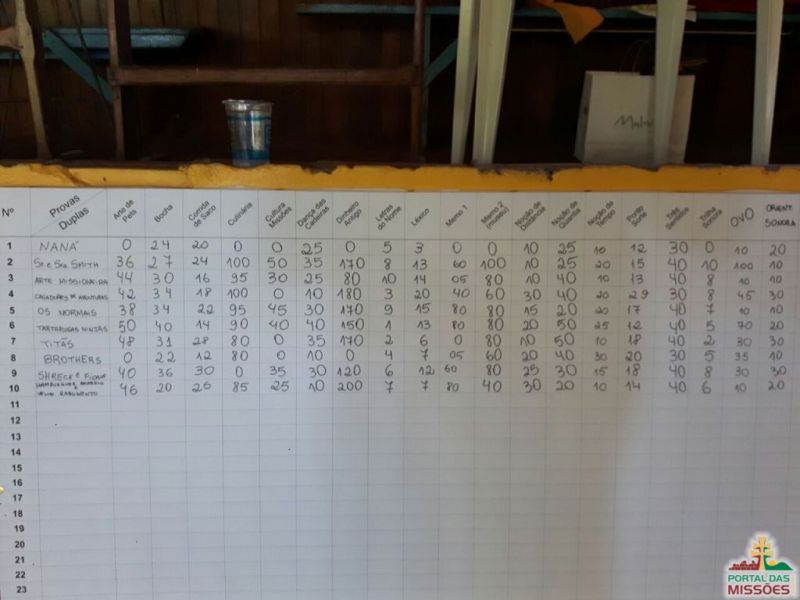 Nº Provas Duplas Arte de Peta Bocha Corrida de Saco Culinária Cultura Missões Dança das Cadeiras Dinheiro Antigo Letras do Nome Léxico Memo 1 Memo 2 (museu) Noção de Distância Noção de Quantia Noção de Tempo Ponto Sorte Três Sentidos Trilha Sonora OVO ORIENT. SONORA
1 NANÁ 0 24 20 0 0 25 0 5 3 0 0 10 25 10 12 30 0 10 20
2 Sr e Sra SMITH 36 27 24 100 50 35 170 8 13 60 100 10 25 20 15 40 10 100 10
3 ARTE MISSIONEIRA 44 30 16 95 30 25 80 10 14 05 80 10 40 10 13 40 8 10 10
4 CAÇADORES DE AVENTURAS 42 34 18 100 0 10 180 3 20 40 60 30 40 20 29 30 8 45 30
5 OS NORMAIS 38 34 22 95 45 30 170 9 15 80 80 15 20 20 17 40 7 10 10
6 TARTARUGAS NINJAS 50 40 14 90 40 40 150 1 13 80 80 20 50 25 12 40 5 70 20
7 TITÃS 48 31 28 80 0 35 170 2 6 0 80 10 50 10 18 40 2 30 30
8 BROTHERS 0 22 12 80 0 10 0 4 7 05 60 20 40 30 20 30 5 35 10
9 SHRECK E FIONA 40 36 30 0 35 30 120 6 12 60 80 25 30 15 18 40 8 30 30
10 46 20 26 85 25 10 200 7 7 80 40 30 20 10 14 40 6 10 20
11
12
13
14
15
16
17
18
19
20
21
22
23
PORTAL DAS
MISSÕES